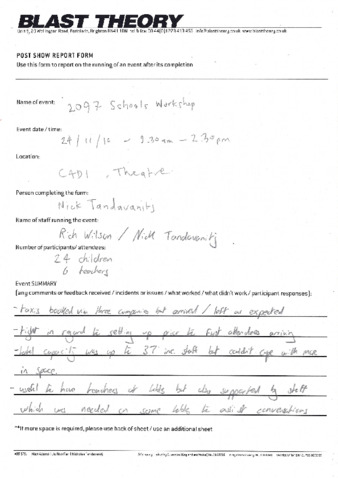 BLAST THEORY
POST SHOW REPORT FORM
Use this form to report on the running of an event after its completion
Name of event: 2097 Schools Workshop
Event date / time:
24/11/16 - 9.30am - 2.30pm
Location:
Theatre
Person completing the form:
Nick Tandavanitj
Name of staff running the event:
Rich Wilson / Nick Tandavanitj
Number of participants/ attendees:
24 children
6 teachers
Event SUMMARY
(any comments or feedback received / incidents or issues / what worked / what didn't work / participant responses):
- taxis booked via three companies but arrived / left as expected
- tight in regard to setting up prior to first attendees arriving
- total capacity was up to 37 inc. staff but couldn't cope with more
in space.
- useful to have teachers at table but also supported by staff
which was needed on some table to assist conversations
**If more space is required, please use back of sheet / use an additional sheet